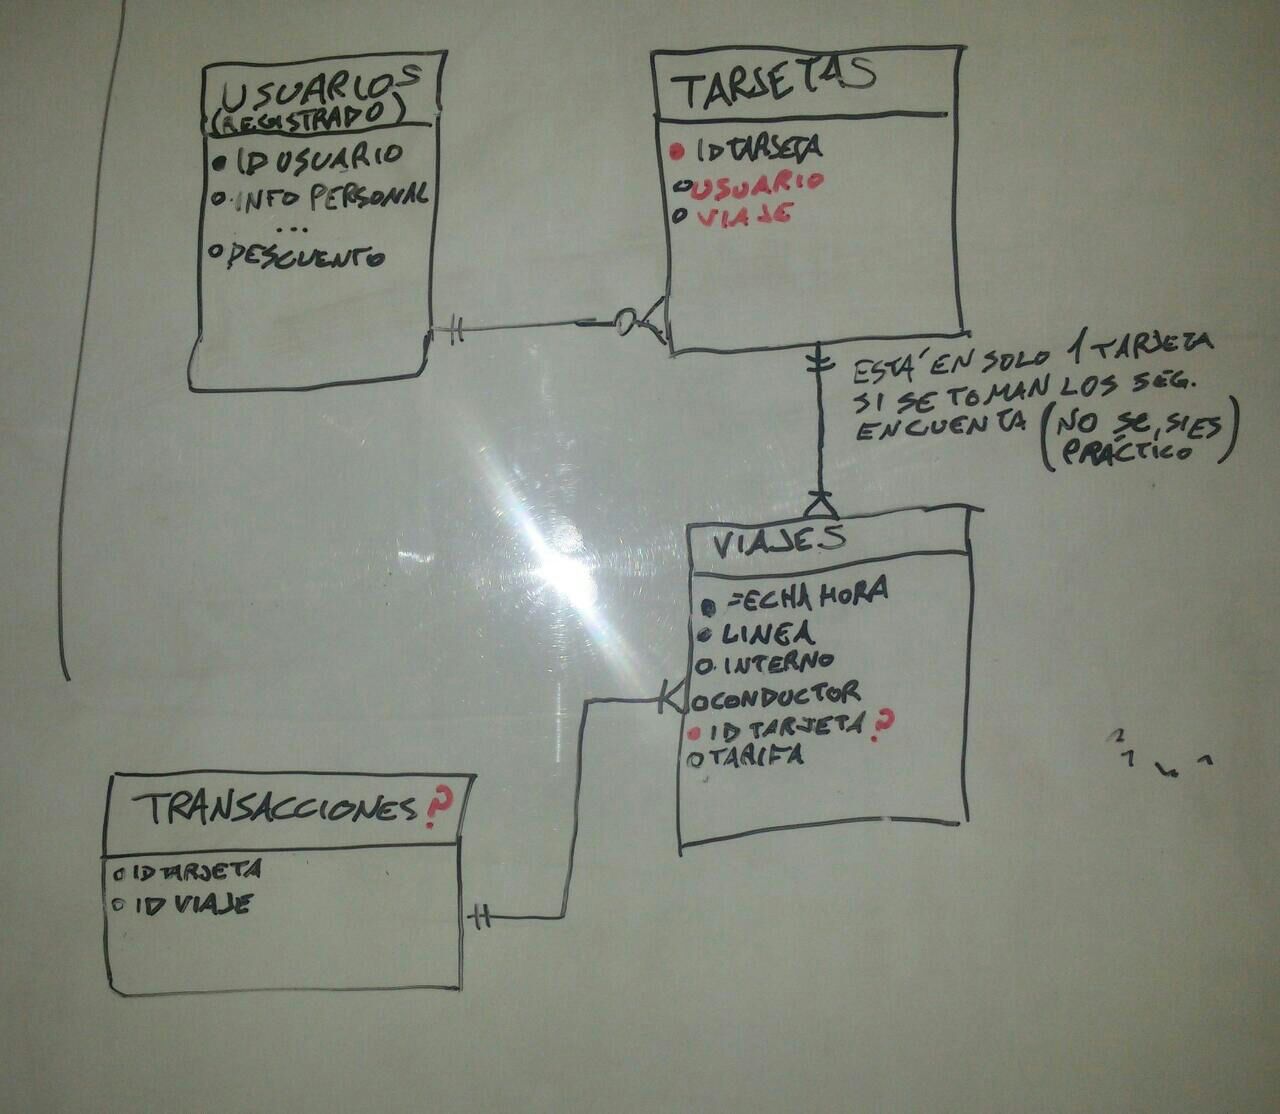 USUARIOS
(REGISTRADO)
ID USUARIO
INFO PERSONAL
...
DESCUENTO
TARJETAS
ID TARJETA
USUARIO
VIAJE
ESTÁ EN SOLO 1 TARJETA
SI SE TOMAN LOS SEG.
EN CUENTA (NO SE, SI ES
PRÁCTICO)
VIAJES
FECHA HORA
LINEA
INTERNO
CONDUCTOR
ID TARJETA?
TARIFA
TRANSACCIONES?
ID TARJETA
ID VIAJE